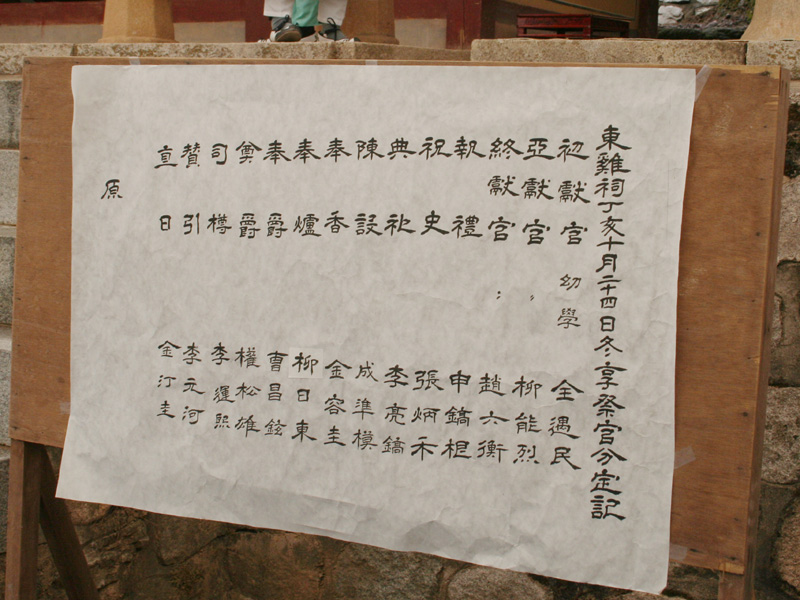 東雞祠丁亥十月二十四日冬享祭官分定記
初獻官 幼學 全遇民
亞獻官 〃 柳能烈
終獻官 〃 趙六衡
執禮 申鎬
祝史 張炳禾
典祀 李亮鎬
陳設 成準模
奉香 金容圭
奉爐 柳日東
奉爵 曹昌鉉
奠爵 權松雄
司樽 李熙
贊引 李元河
直日 金汀圭
原